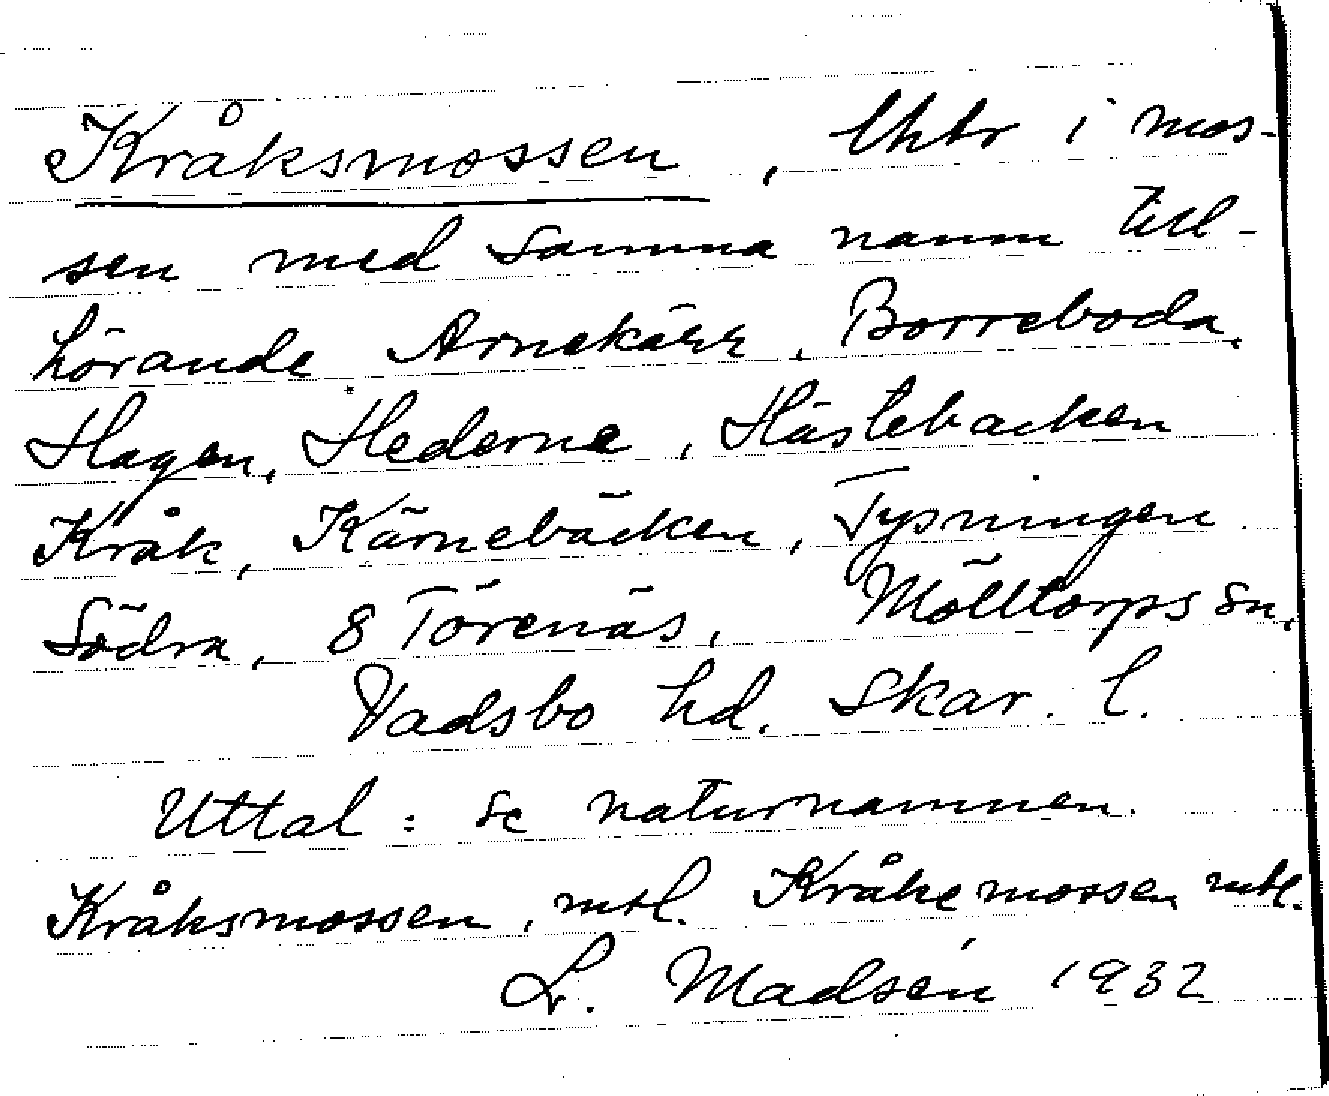 Kråksmossen, lhtr i mos-
sen med samma namn till-
hörande Arnekärr, Borreboda,
Hagen, Hederne, Hästebacken
Kråk, Kärnebäcken, Tysningen
Södra, 8 Törenäs, Mölltorps sn,
Vadsbo hd. Skar. l.
Uttal: se naturnamnen.
Kråksmossen, mtl. Kråkemossen mtl.
L. Madsén 1932